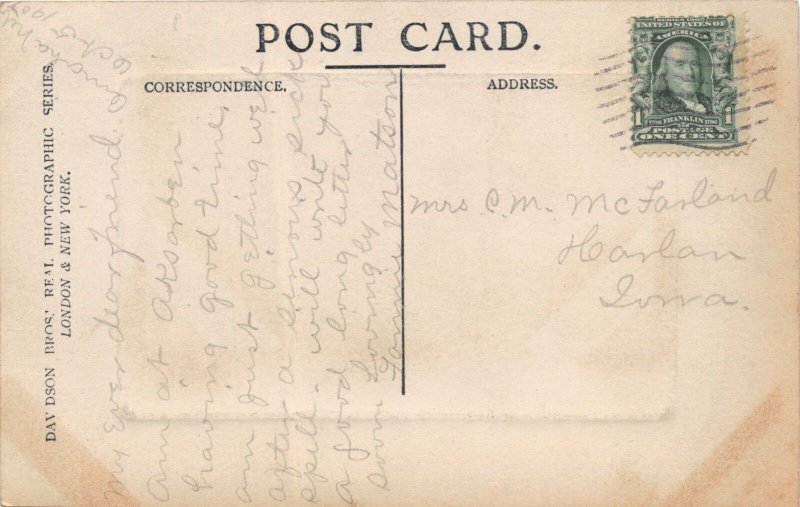 POST CARD.
CORRESPONDENCE.
ADDRESS.
SERIES 1902
UNITED STATES OF
AMERICA
1
1
1706 FRANKLIN 1790
POSTAGE
ONE CENT
Mrs C. M. McFarland
Harlan
Iowa.
DAVIDSON BROS.' REAL PHOTOGRAPHIC SERIES.
LONDON & NEW YORK.
Omaha
Oct
My Ever dear friend
Am at Aksarben
having good time,
am just getting well
after a serious sick
spell - will write you
a good long letter
soon Lovingly
Matson